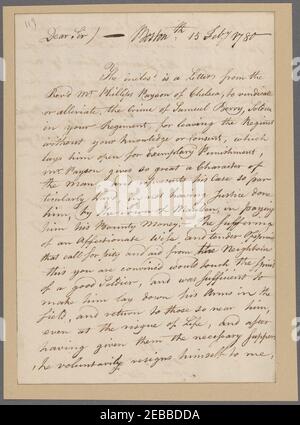 119
Dear Sir) — Boston th 15 Feby 1780
The inclos'd is a Letter from the
Revd Mr Phillips Payson of Chelsea, to vindicate
or alleviate, the Crime of Samuel Berry, Soldier
in your Regiment, for leaving the Regimt
without your Knowledge or Consent, which
lays him open for Exemplary Punishment,
Mr Payson gives so great a Character of
the Man and represents his Case so par
ticularly hard, by not having Justice done
him, by the Town of Malden, in paying
him his Bounty Money, The suffering
of an Affectionate Wife and tender Offspring
that call for pity and aid from the Neighbours
this you are convinced would touch the Spirit
of a good Soldier, and was sufficient to
make him lay down his Arms in the
field, and return to those so near him,
even at the risque of Life, and after
having given them the necessary Support
he voluntarily resigns himself to me,
alamy
Image ID: 2EBBDDA
www.alamy.com